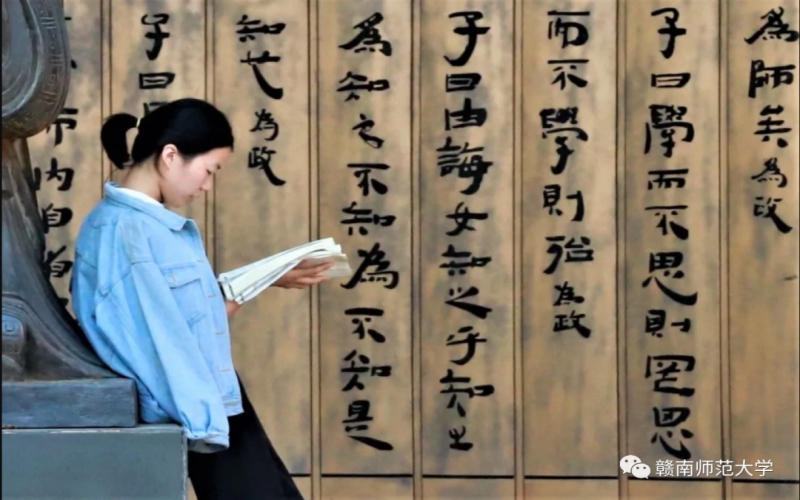 為師矣為政
子曰學而不思則罔思
而不學則殆為政
子曰由誨女知之乎知之
為知之不知為不知是
知也為政
子曰
而內自
赣南师范大学